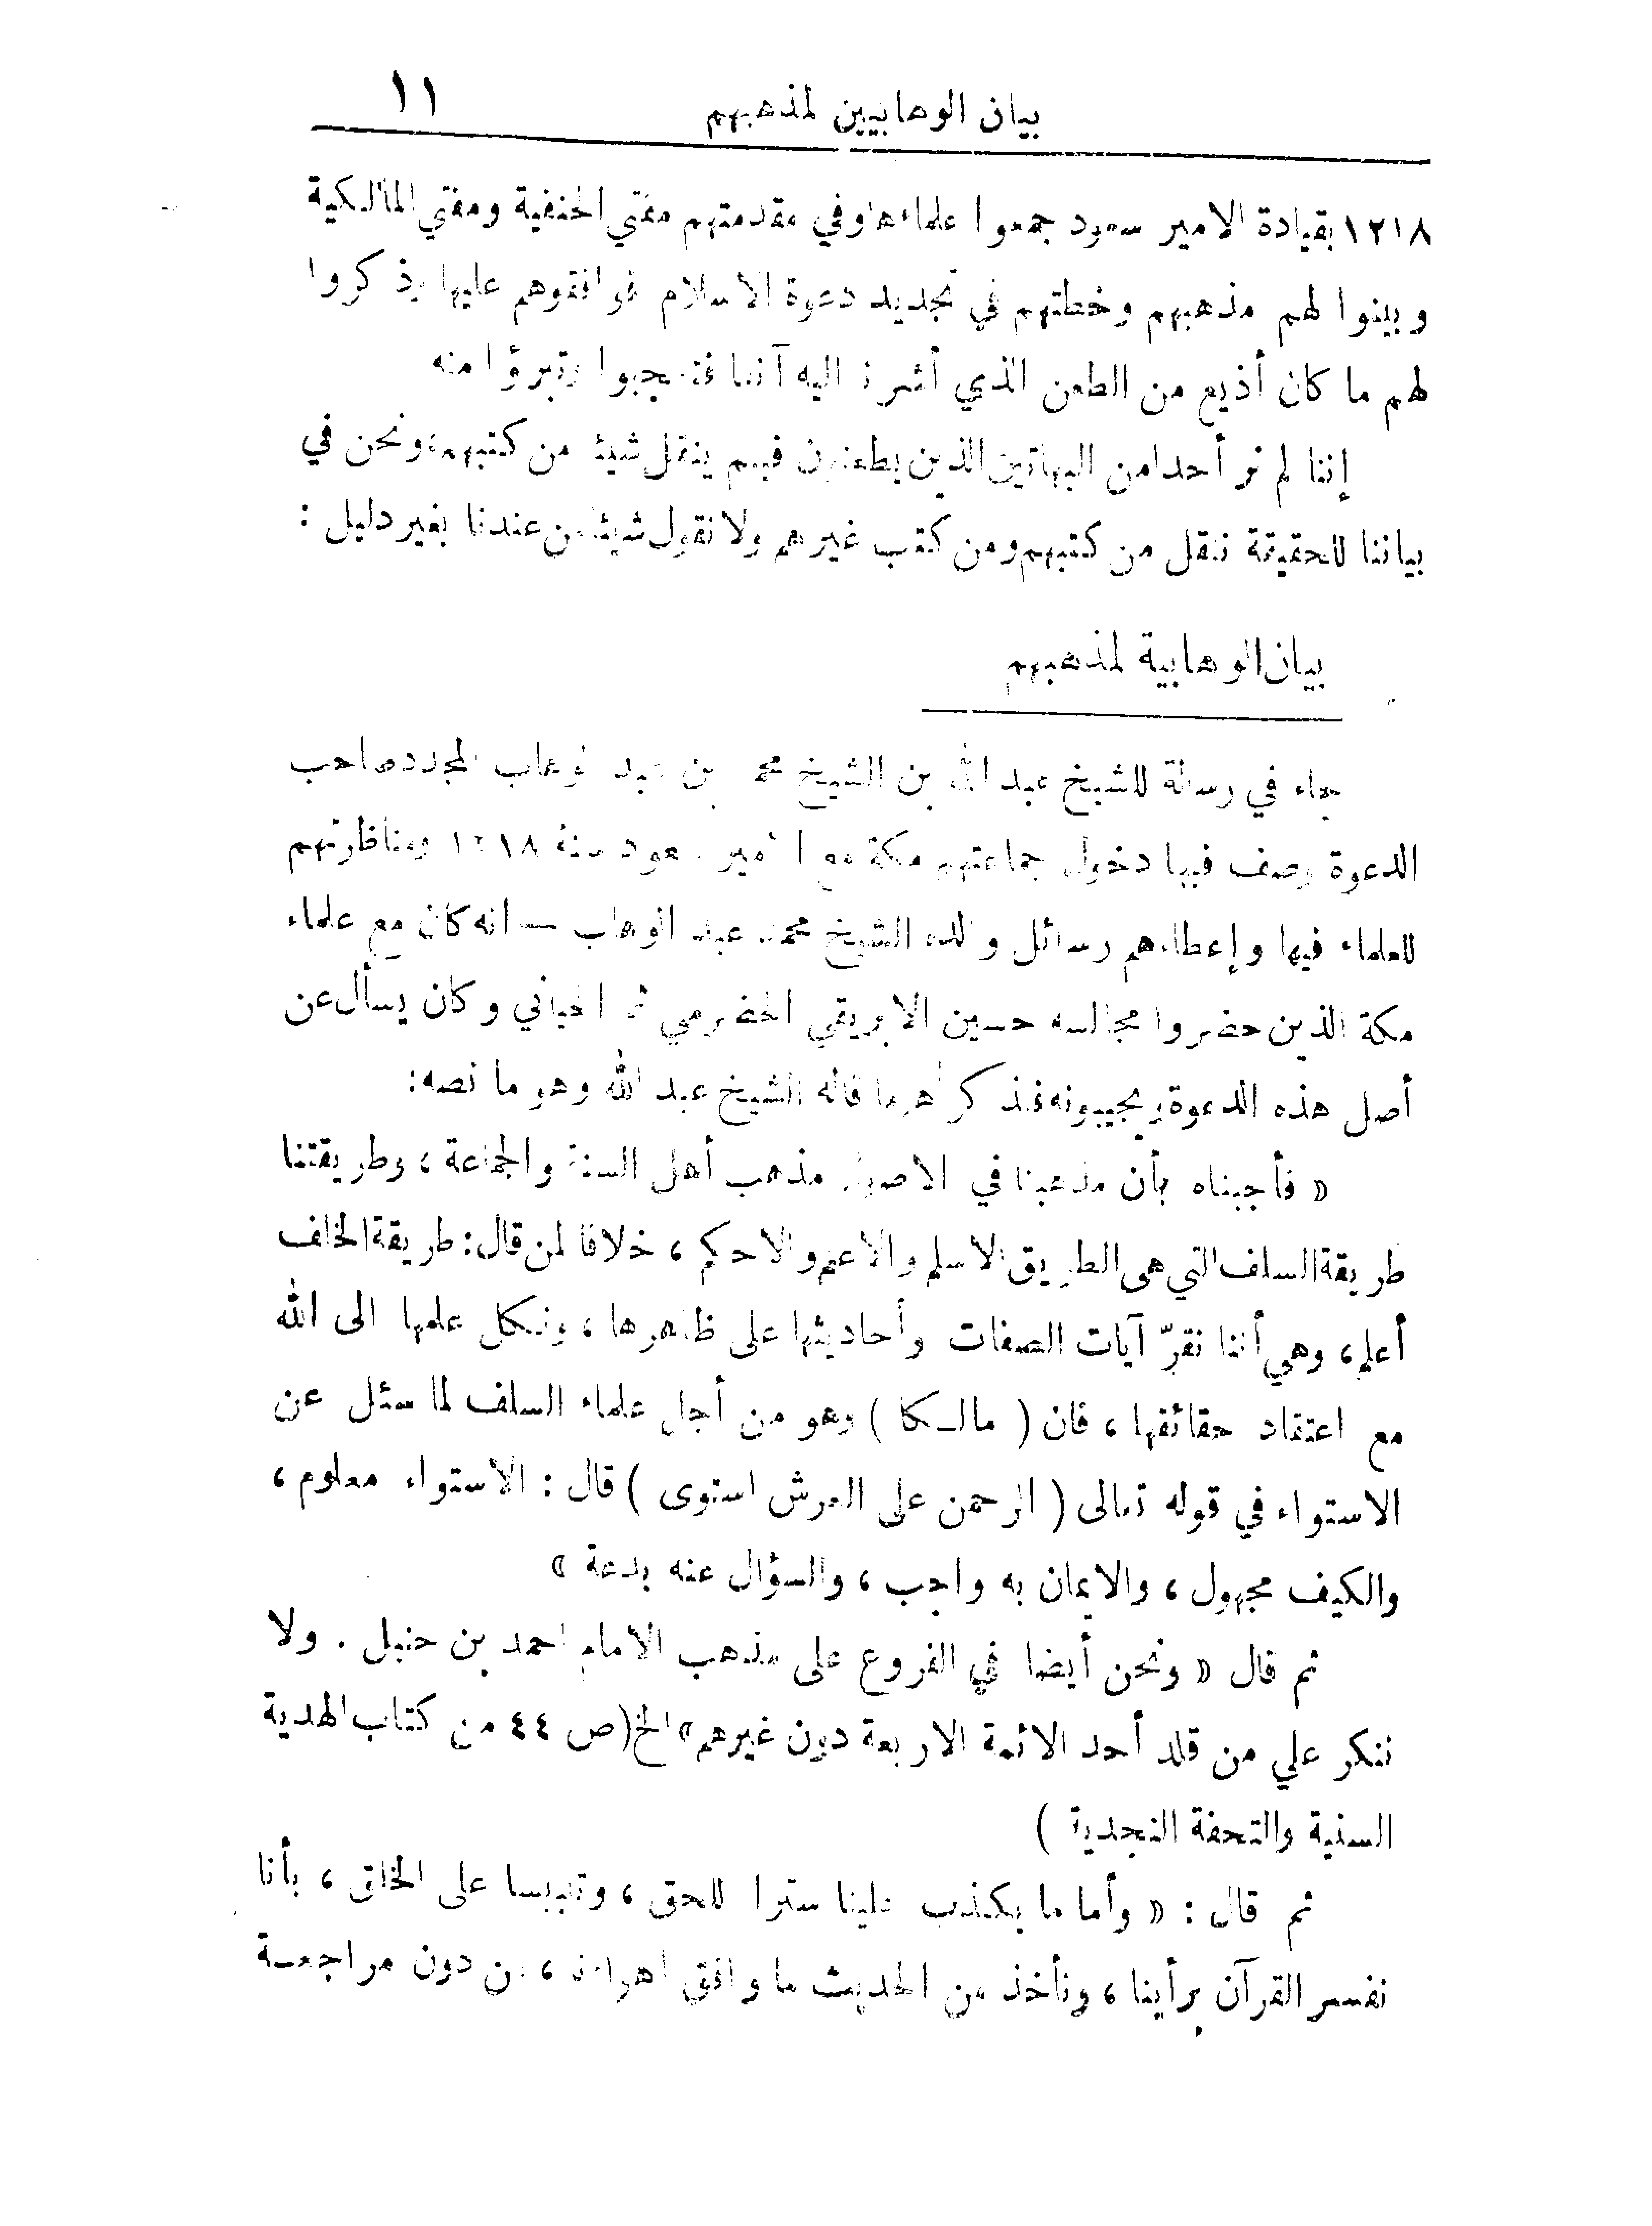 بيان الوهابيين لمذهبهم ١١
١٢١٨ بقيادة الامير سعود جمعوا علماءها وفي مقدمتهم مفتي الحنفية ومفتي المالكية
وبينوا لهم مذهبهم وخطتهم في تجديد دعوة الاسلام فوافقوهم عليها وذكروا
لهم ما كان أذيع من الطعن الذي أشرنا اليه آنفا فتعجبوا وتبرؤا منه
إننا لم نر أحدا من البهاتين الذين يطعنون فيهم ينقل شيئا من كتبهم، ونحن في
بياننا للحقيقة ننقل من كتبهم ومن كتب غيرهم ولا نقول شيئا من عندنا بغير دليل :
بيان الوهابية لمذهبهم
جاء في رسالة للشيخ عبد الله بن الشيخ محمد بن عبد الوهاب المجدد صاحب
الدعوة وصف فيها دخول جماعتهم مكة مع الامير سعود سنة ١٢١٨ ومناظرتهم
للعلماء فيها وإعطاءهم رسائل والده الشيخ محمد عبد الوهاب — انه كان مع علماء
مكة الذين حضروا مجالسه حسين الابريقي الحضرمي ثم الحياني وكان يسأل عن
أصل هذه الدعوة ويجيبونه فنذكر أهم ما قاله الشيخ عبد الله وهو ما نصه:
« فأجبناه بأن مذهبنا في الاصول مذهب أهل السنة والجماعة ، وطريقتنا
طريقة السلف التي هي الطريق الاسلم والاعلم والاحكم ، خلافا لمن قال: طريقة الخلف
أعلم، وهي أننا نقرّ آيات الصفات وأحاديثها على ظاهرها ، ونكل علمها الى الله
مع اعتقاد حقائقها ، فان ( مالكا ) وهو من أجل علماء السلف لما سئل عن
الاستواء في قوله تعالى ( الرحمن على العرش استوى ) قال : الاستواء معلوم ،
والكيف مجهول ، والايمان به واجب ، والسؤال عنه بدعة »
ثم قال « ونحن أيضا في الفروع على مذهب الامام احمد بن حنبل . ولا
ننكر علي من قلد أحد الائمة الاربعة دون غيرهم » الخ (ص ٤٤ من كتاب الهدية
السنية والتحفة النجدية )
ثم قال : « وأما ما يكذب علينا سترا للحق ، وتلبيسا على الخلق ، بأنا
نفسر القرآن برأينا ، ونأخذ من الحديث ما وافق اهواءنا ، من دون مراجعة